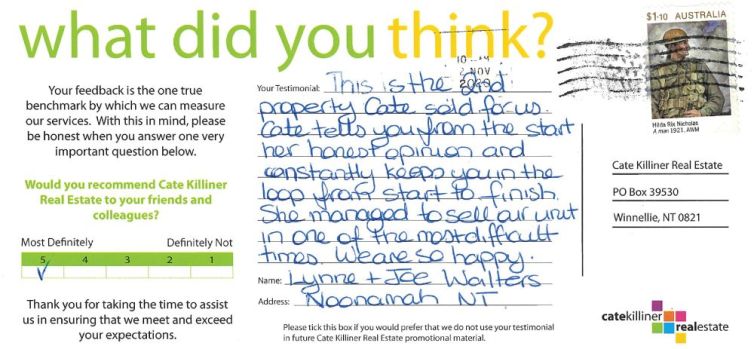 what did you think?
Your feedback is the one true
benchmark by which we can measure
our services. With this in mind, please
be honest when you answer one very
important question below.
Would you recommend Cate Killiner
Real Estate to your friends and
colleagues?
Most Definitely Definitely Not
5 4 3 2 1
Thank you for taking the time to assist
us in ensuring that we meet and exceed
your expectations.
Your Testimonial: This is the 2nd
property Cate sold for us.
Cate tells you from the start
her honest opinion and
constantly keeps you in the
loop from start to finish.
She managed to sell our unit
in one of the most difficult
times. We are so happy.
Name: Lynne + Joe Walters
Address: Noonamah NT
Please tick this box if you would prefer that we do not use your testimonial
in future Cate Killiner Real Estate promotional material.
NOV
$1.10 AUSTRALIA
Hilda Rix Nicholas
A man 1921, AWM
Cate Killiner Real Estate
PO Box 39530
Winnellie, NT 0821
catekilliner
realestate